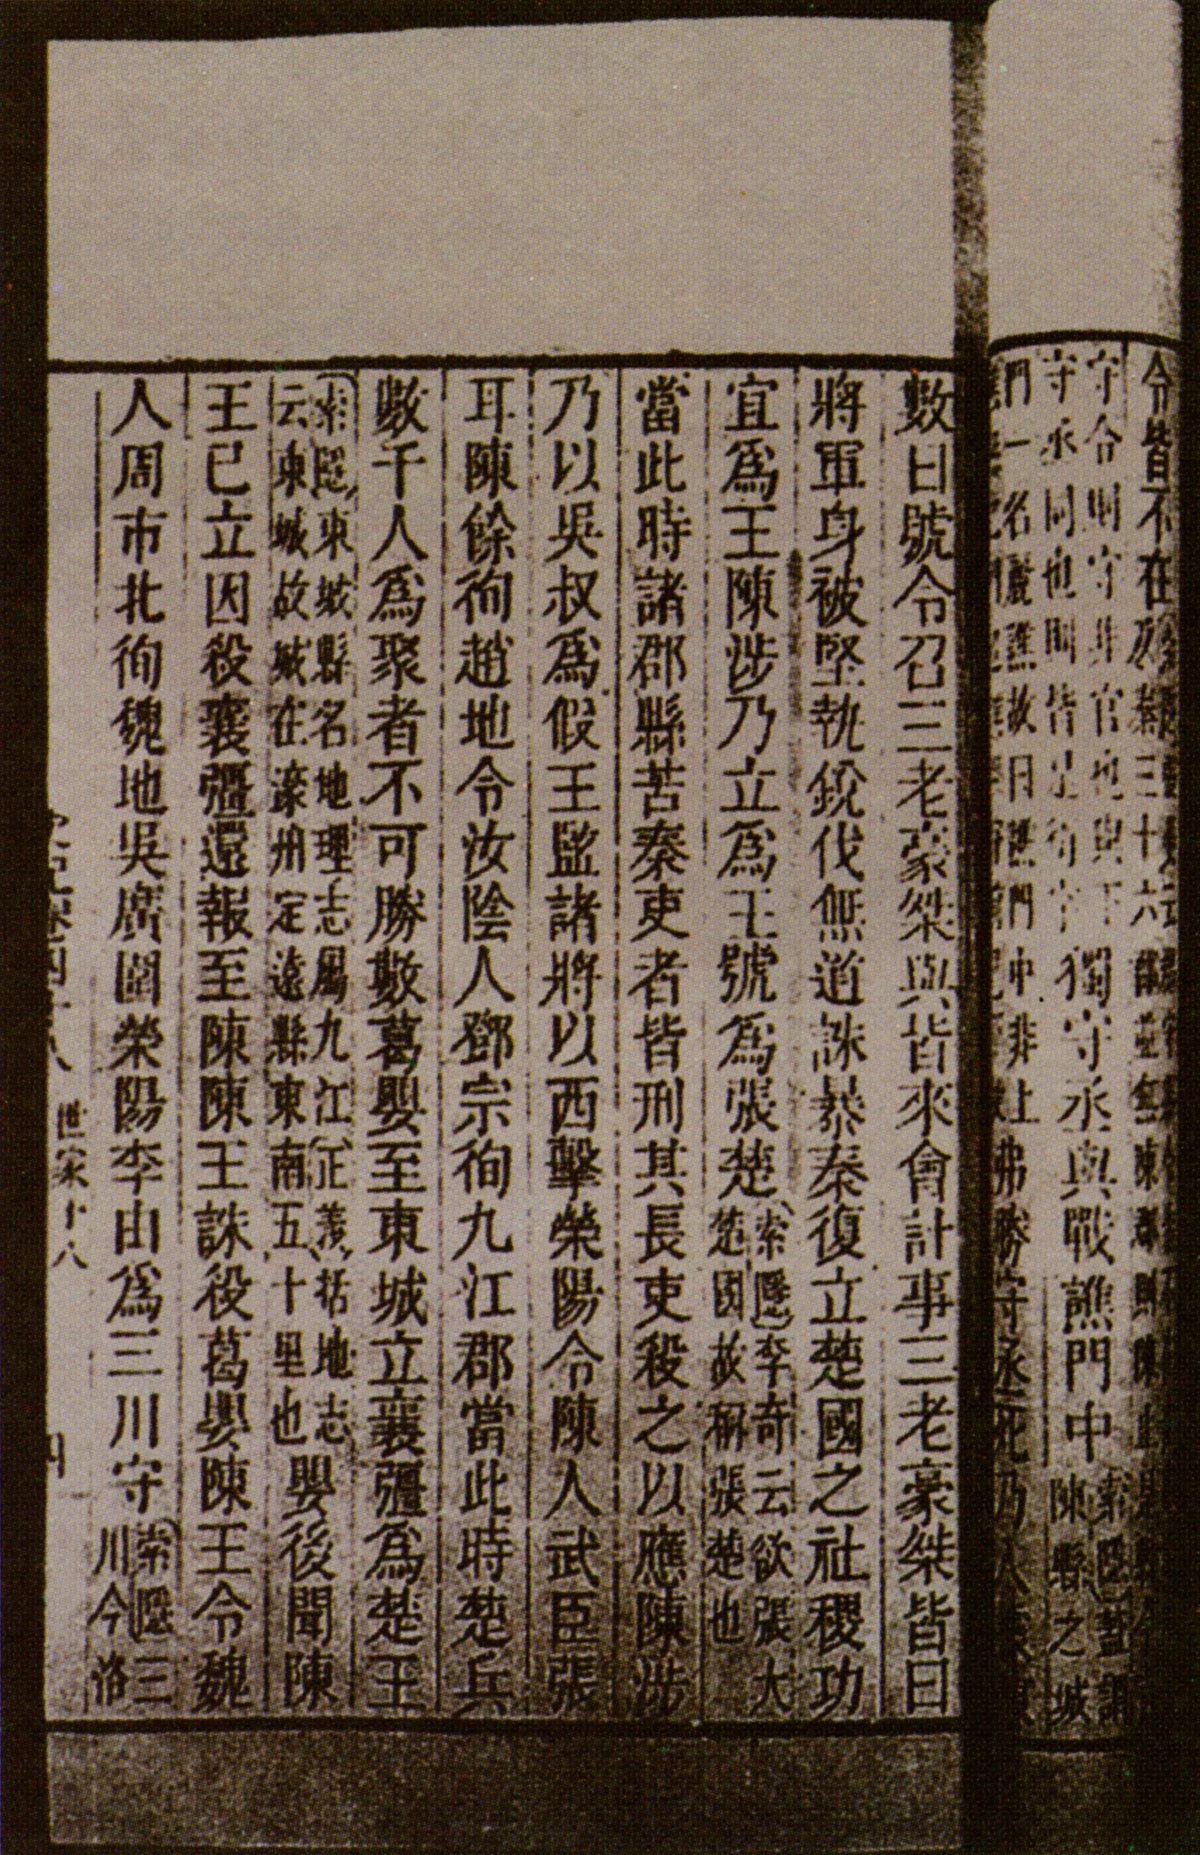 令皆不在
守令則守非官也與下
守丞同也則皆是
獨守丞與戰譙門中
索隱蓋謂
陳縣之城
門一名麗譙故曰譙門中非上
弗勝守丞死乃入
數日號令召三老豪桀與皆來會計事三老豪桀皆曰
將軍身被堅執銳伐無道誅暴秦復立楚國之社稷功
宜為王陳涉乃立為王號為張楚
索隱李奇云欲張大
楚國故稱張楚也
當此時諸郡縣苦秦吏者皆刑其長吏殺之以應陳涉
乃以吳叔為假王監諸將以西擊榮陽令陳人武臣張
耳陳餘徇趙地令汝陰人鄧宗徇九江郡當此時楚兵
數千人為聚者不可勝數葛嬰至東城立襄彊為楚王
索隱東城縣名地理志屬九江正義括地志
云東城故城在濠州定遠縣東南五十里也
嬰後聞陳
王已立因殺襄彊還報至陳陳王誅殺葛嬰陳王令魏
人周市北徇魏地吳廣圍榮陽李由為三川守
索隱三
川今洛
世家十八
四